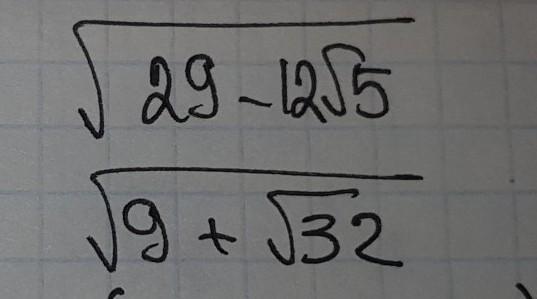 √(29-12√5)
√(9+√32)